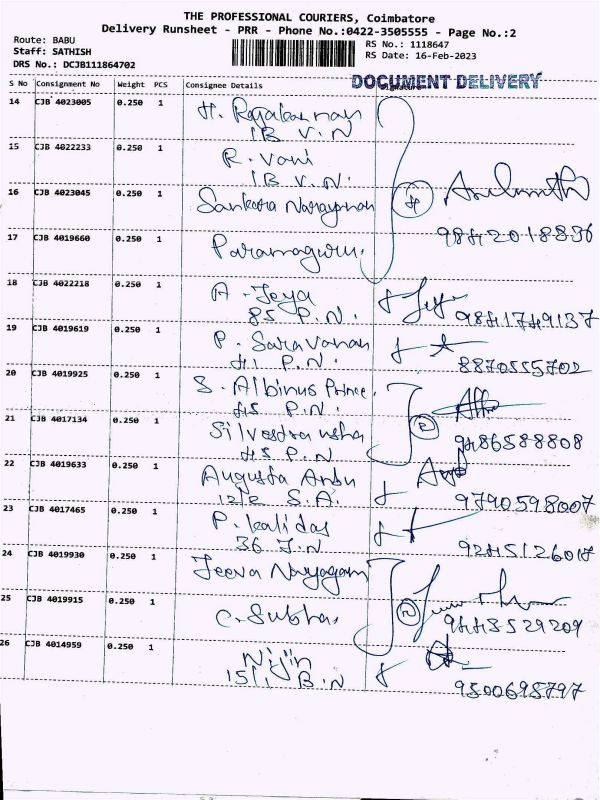 THE PROFESSIONAL COURIERS, Coimbatore
Delivery Runsheet - PRR - Phone No.:0422-3505555 - Page No.:2
Route: BABU
Staff: SATHISH
DRS No.: DCJB111864702
RS No.: 1118647
RS Date: 16-Feb-2023
DOCUMENT DELIVERY
S No Consignment No Weight PCS Consignee Details Signature
14 CJB 4023005 0.250 1 H. Rajakannan
1B V.N
15 CJB 4022233 0.250 1 R. Vani
1B V.N.
16 CJB 4023045 0.250 1 Sankara Narayanan
9842018836
17 CJB 4019660 0.250 1 Paramaguru.
18 CJB 4022218 0.250 1 A. Jeya
85 P.N. 9841749137
19 CJB 4019619 0.250 1 P. Saravanan
41 P.N. 8870555702
20 CJB 4019925 0.250 1 S. Albinus Prince.
45 P.N.
21 CJB 4017134 0.250 1 Silvestra usha 9486588808
45 P.N
22 CJB 4019633 0.250 1 Augusta Anbu
12/2 S.A. 9790598007
23 CJB 4017465 0.250 1 P. Kalidas
36 J.N 9245126017
24 CJB 4019930 0.250 1 Jeeva Nayagam
25 CJB 4019915 0.250 1 C. Subha. 9443529209
26 CJB 4014959 0.250 1 Nijin
15/1 B.N 9500695797